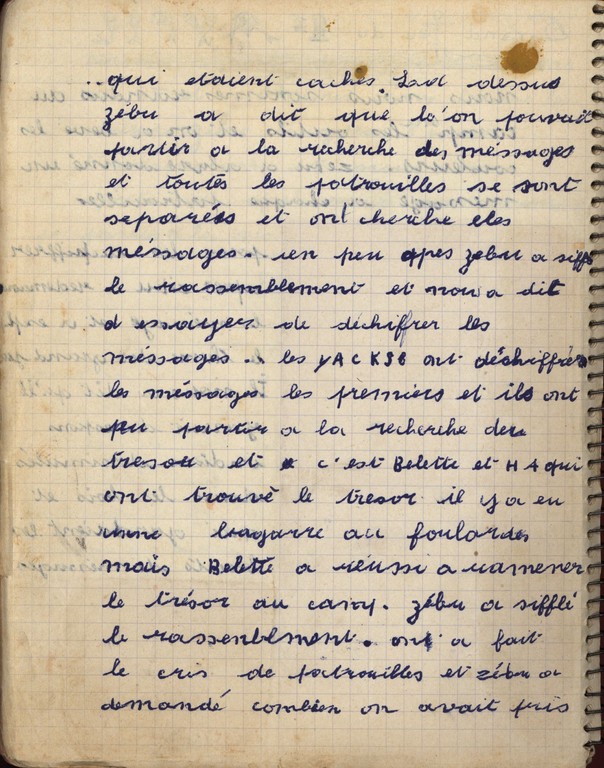 ..qui etaient cachés. Lad dessus
zébu a dit que la'on pouvait
partir a la recherche des méssages
et toutes les patrouilles se sont
separées et ont cherche les
méssages. un peu apes zebu a siffle
le rassemblement et nous a dit
d essayer de déchiffrer les
méssages. les YACKSE ont déchiffrés
les méssages les premiers et ils ont
pu partir a la recherche du
tresor et c'est Belette et HA qui
ont trouvé le tresor il y a eu
une bagarre au foulards
maïs Belette a réussi a ramener
le trésor au camp. zébu a sifflé
le rassemblement. on a fait
le cris de patrouilles et zébu a
demandé combien on avait pris